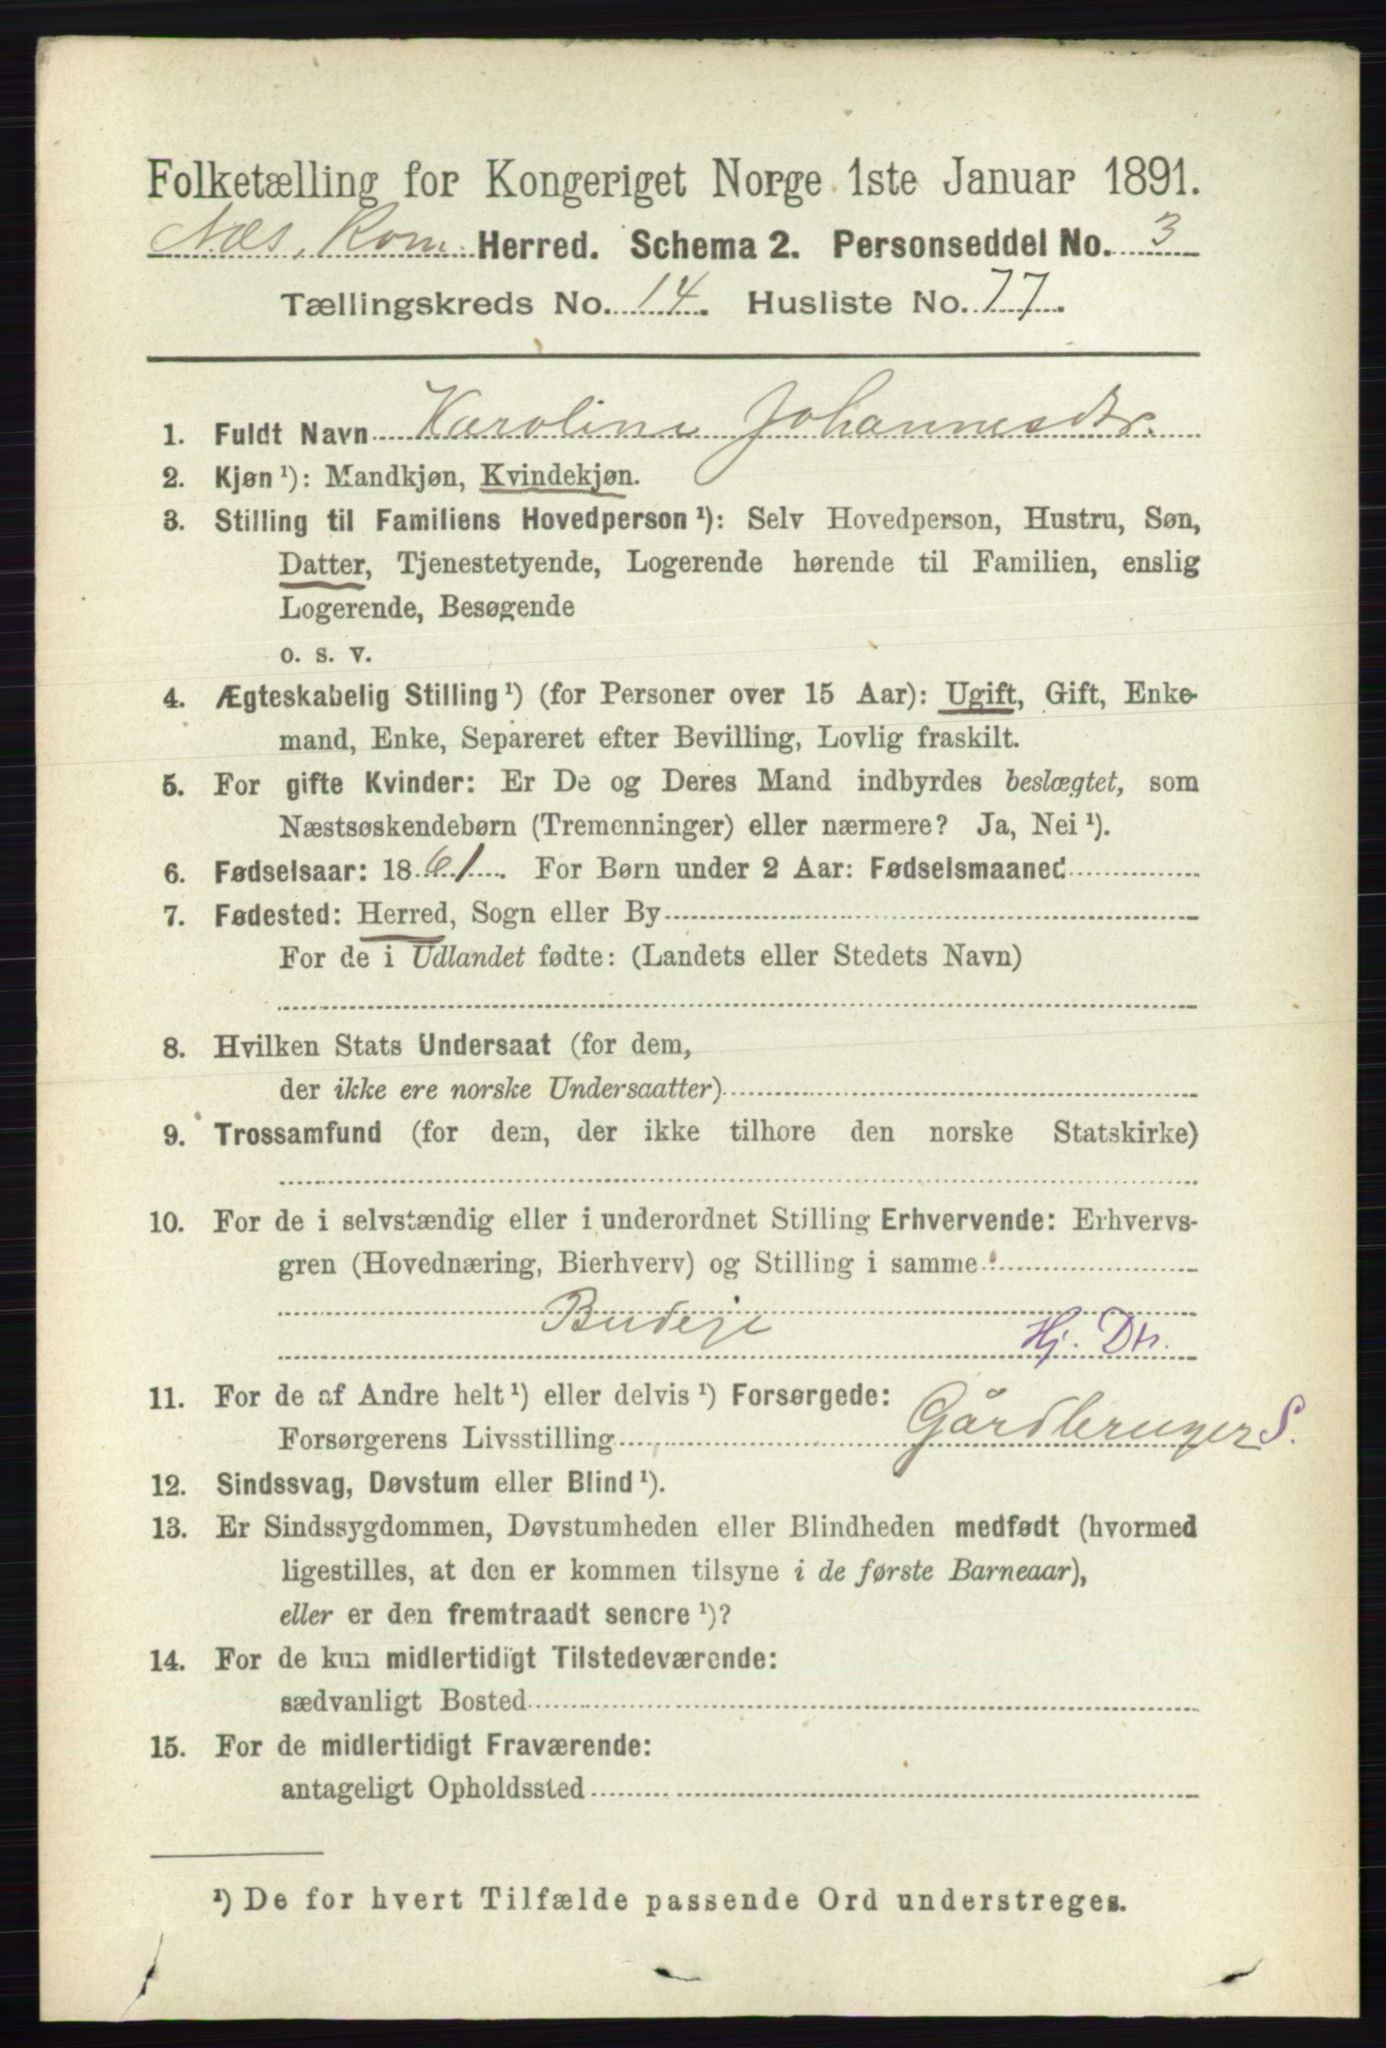 Folketælling for Kongeriget Norge 1ste Januar 1891.
Næs, Rom. Herred. Schema 2. Personseddel No. 3
Tællingskreds No. 14. Husliste No. 77.
1. Fuldt Navn Karoline Johannesdtr.
2. Kjøn ¹): Mandkjøn, Kvindekjøn.
3. Stilling til Familiens Hovedperson ¹): Selv Hovedperson, Hustru, Søn,
Datter, Tjenestetyende, Logerende hørende til Familien, enslig
Logerende, Besøgende
o. s. v.
4. Ægteskabelig Stilling ¹) (for Personer over 15 Aar): Ugift, Gift, Enke-
mand, Enke, Separeret efter Bevilling, Lovlig fraskilt.
5. For gifte Kvinder: Er De og Deres Mand indbyrdes beslægtet, som
Næstsøskendebørn (Tremenninger) eller nærmere? Ja, Nei ¹).
6. Fødselsaar: 1861. For Børn under 2 Aar: Fødselsmaaned
7. Fødested: Herred, Sogn eller By
For de i Udlandet fødte: (Landets eller Stedets Navn)
8. Hvilken Stats Undersaat (for dem,
der ikke ere norske Undersaatter)
9. Trossamfund (for dem, der ikke tilhøre den norske Statskirke)
10. For de i selvstændig eller i underordnet Stilling Erhvervende: Erhvervs-
gren (Hovednæring, Bierhverv) og Stilling i samme
Budeje Hj. Dtr.
11. For de af Andre helt ¹) eller delvis ¹) Forsørgede:
Forsørgerens Livsstilling Gårdbruger S.
12. Sindssvag, Døvstum eller Blind ¹).
13. Er Sindssygdommen, Døvstumheden eller Blindheden medfødt (hvormed
ligestilles, at den er kommen tilsyne i de første Barneaar),
eller er den fremtraadt senere ¹)?
14. For de kun midlertidigt Tilstedeværende:
sædvanligt Bosted
15. For de midlertidigt Fraværende:
antageligt Opholdssted
¹) De for hvert Tilfælde passende Ord understreges.